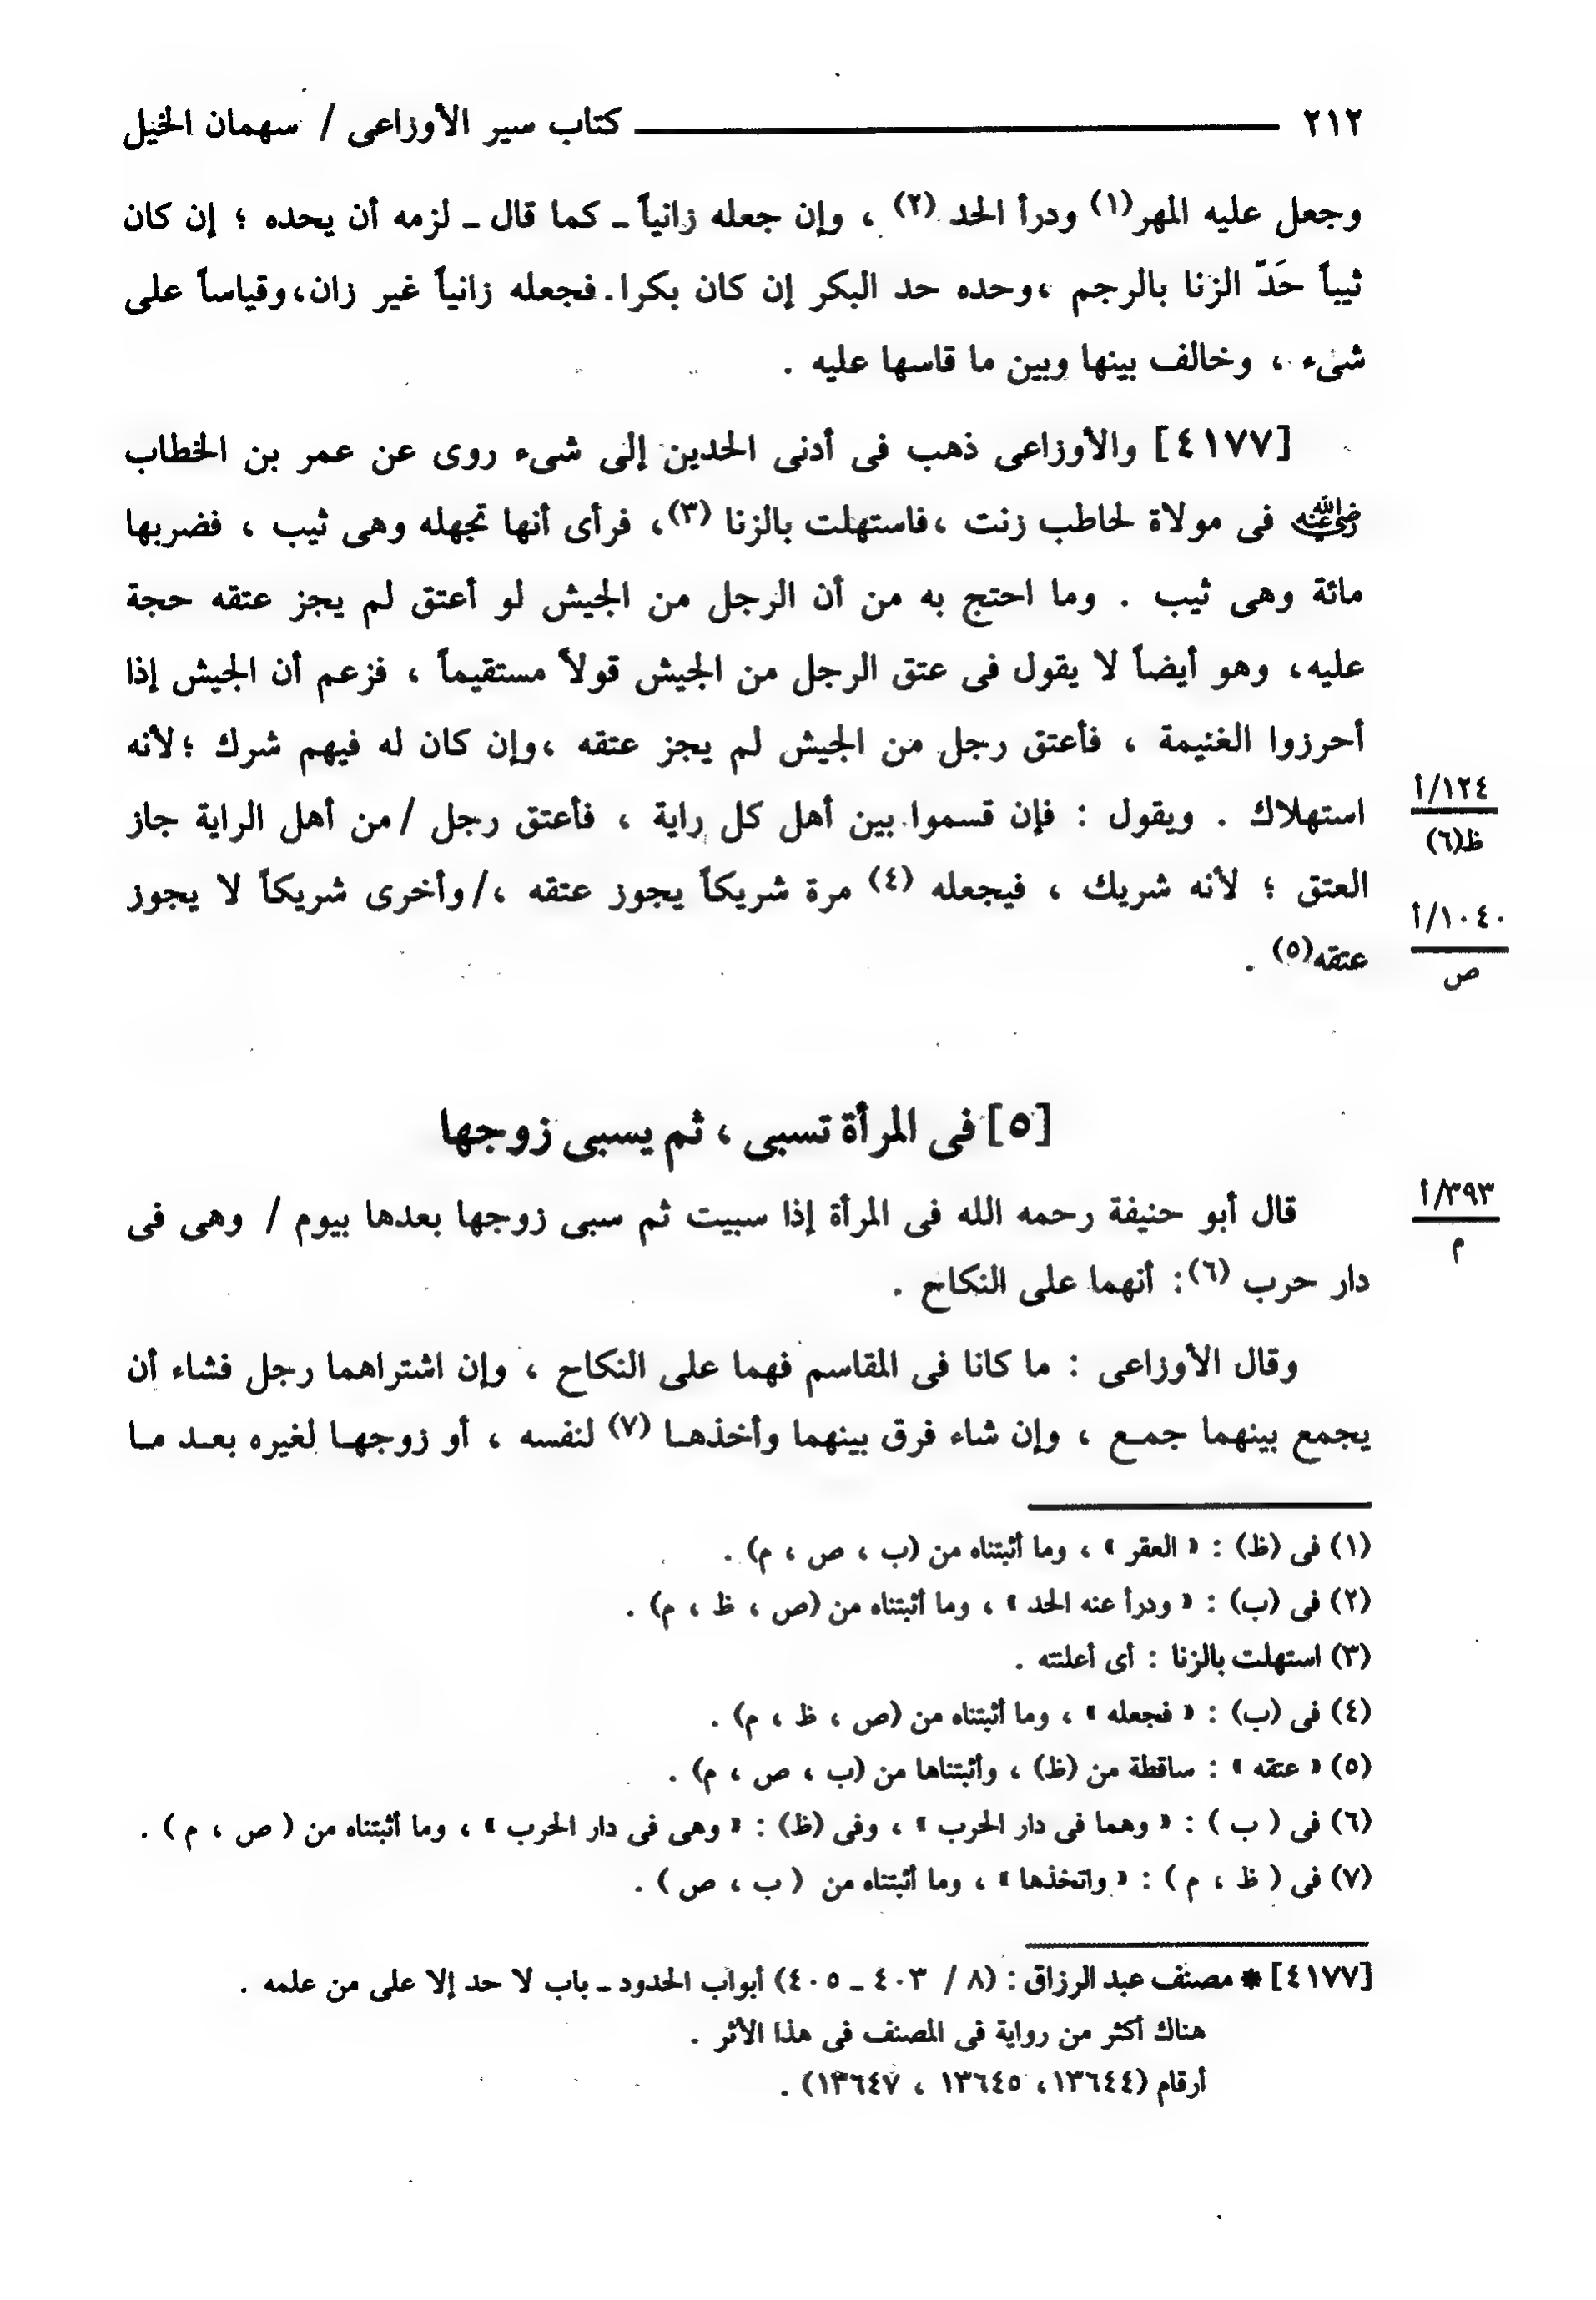 ٢١٢ ــــــــــــــــــــ كتاب سير الأوزاعى / سهمان الخيل
وجعل عليه المهر(١) ودرأ الحد (٢) ، وإن جعله زانياً ـ كما قال ـ لزمه أن يحده ؛ إن كان
ثيباً حَدّ الزنا بالرجم ،وحده حد البكر إن كان بكرا.فجعله زانياً غير زان،وقياساً على
شىء ، وخالف بينها وبين ما قاسها عليه .
[٤١٧٧] والأوزاعى ذهب فى أدنى الحدين إلى شىء روى عن عمر بن الخطاب
رضي الله عنه فى مولاة لحاطب زنت ،فاستهلت بالزنا (٣)، فرأى أنها تجهله وهى ثيب ، فضربها
مائة وهى ثيب . وما احتج به من أن الرجل من الجيش لو أعتق لم يجز عتقه حجة
عليه، وهو أيضاً لا يقول فى عتق الرجل من الجيش قولاً مستقيماً ، فزعم أن الجيش إذا
أحرزوا الغنيمة ، فأعتق رجل من الجيش لم يجز عتقه ،وإن كان له فيهم شرك ؛لأنه
استهلاك . ويقول : فإن قسموا بين أهل كل راية ، فأعتق رجل /من أهل الراية جاز
١٢٤/أ
ظ(٦)
العتق ؛ لأنه شريك ، فيجعله (٤) مرة شريكاً يجوز عتقه ،/وأخرى شريكاً لا يجوز
١٠٤٠/أ
ص
عتقه(٥) .
[٥] فى المرأة تسبى ، ثم يسبى زوجها
قال أبو حنيفة رحمه الله فى المرأة إذا سبيت ثم سبى زوجها بعدها بيوم / وهى فى
٣٩٣/أ
م
دار حرب (٦): أنهما على النكاح .
وقال الأوزاعى : ما كانا فى المقاسم فهما على النكاح ، وإن اشتراهما رجل فشاء أن
يجمع بينهما جمـع ، وإن شاء فرق بينهما وأخذهـا (٧) لنفسه ، أو زوجهـا لغيره بعـد مـا
(١) فى (ظ) : « العقر » ، وما أثبتناه من (ب ، ص ، م) .
(٢) فى (ب) : « ودرأ عنه الحد » ، وما أثبتناه من (ص ، ظ ، م) .
(٣) استهلت بالزنا : أى أعلنته .
(٤) فى (ب) : « فجعله » ، وما أثبتناه من (ص ، ظ ، م) .
(٥) « عتقه » : ساقطة من (ظ) ، وأثبتناها من (ب ، ص ، م) .
(٦) فى ( ب ) : « وهما فى دار الحرب » ، وفى (ظ) : « وهى فى دار الحرب » ، وما أثبتناه من ( ص ، م ) .
(٧) فى ( ظ ، م ) : « واتخذها » ، وما أثبتناه من ( ب ، ص ) .
[٤١٧٧] * مصنف عبد الرزاق : (٨ / ٤٠٣ ـ ٤٠٥) أبواب الحدود ـ باب لا حد إلا على من علمه .
هناك أكثر من رواية فى المصنف فى هذا الأثر .
أرقام (١٣٦٤٤، ١٣٦٤٥ ، ١٣٦٤٧) .